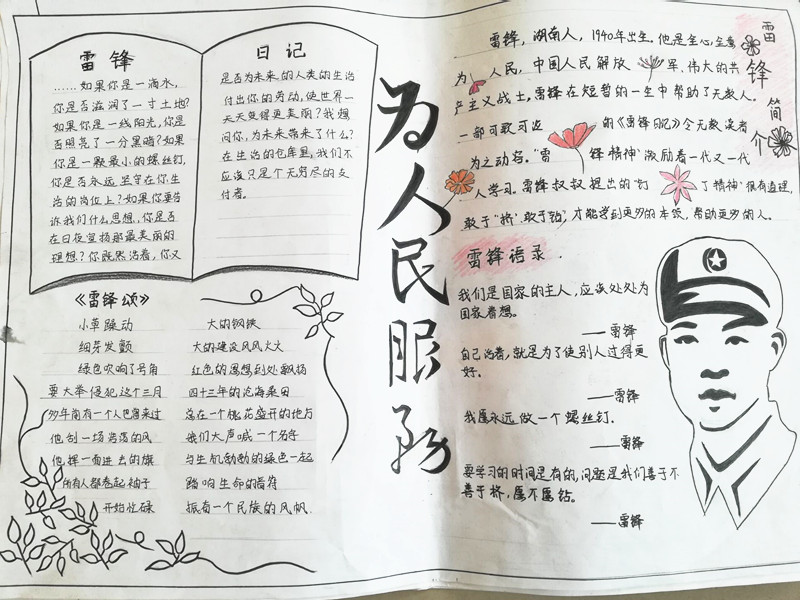 雷锋 日记
……如果你是一滴水，
你是否滋润了一寸土地？
如果你是一线阳光，你是
否照亮了一分黑暗？如果
你是一颗最小的螺丝钉，
你是否永远坚守在你生
活的岗位上？如果你要告
诉我们什么思想，你是否
在日夜宣扬那最美丽的
理想？你既然活着，你又
是否为未来的人类的生活
付出你的劳动，使世界一
天天变得更美丽？我想
问你，为未来带来了什么？
在生活的仓库里，我们不
应该只是个无穷尽的支
付者。
《雷锋颂》
小草躁动
细芽发颤
绿色吹响了号角
要大举侵犯这个三月
多年前有一个人也曾来过
他刮一场浩荡的风
他挥一面进击的旗
所有人都卷起袖子
开始忙碌
大的钢铁
大的建设风风火火
红色的思想到处飘扬
四十三年的沧海桑田
总在一个桃花盛开的地方
我们大声喊一个名字
与生机勃勃的绿色一起
踏响生命的音符
振奋一个民族的风帆
为人民服务
雷锋简介
雷锋，湖南人，1940年出生。他是全心全意
为人民，中国人民解放军、伟大的共
产主义战士，雷锋在短暂的一生中帮助了无数人。
一部可歌可泣的《雷锋日记》令无数读者
为之动容。“雷锋精神”激励着一代又一代
人学习。雷锋叔叔提出的“钉了精神”很有道理，
敢于“挤”敢于钻，才能学到更多的本领，帮助更多的人。
雷锋语录.
我们是国家的主人，应该处处为
国家着想。
——雷锋
自己活着，就是为了使别人过得更
好。
——雷锋
我愿永远做一个螺丝钉.
——雷锋
要学习的时间是有的，问题是我们善于不
善于挤，愿不愿钻。
——雷锋